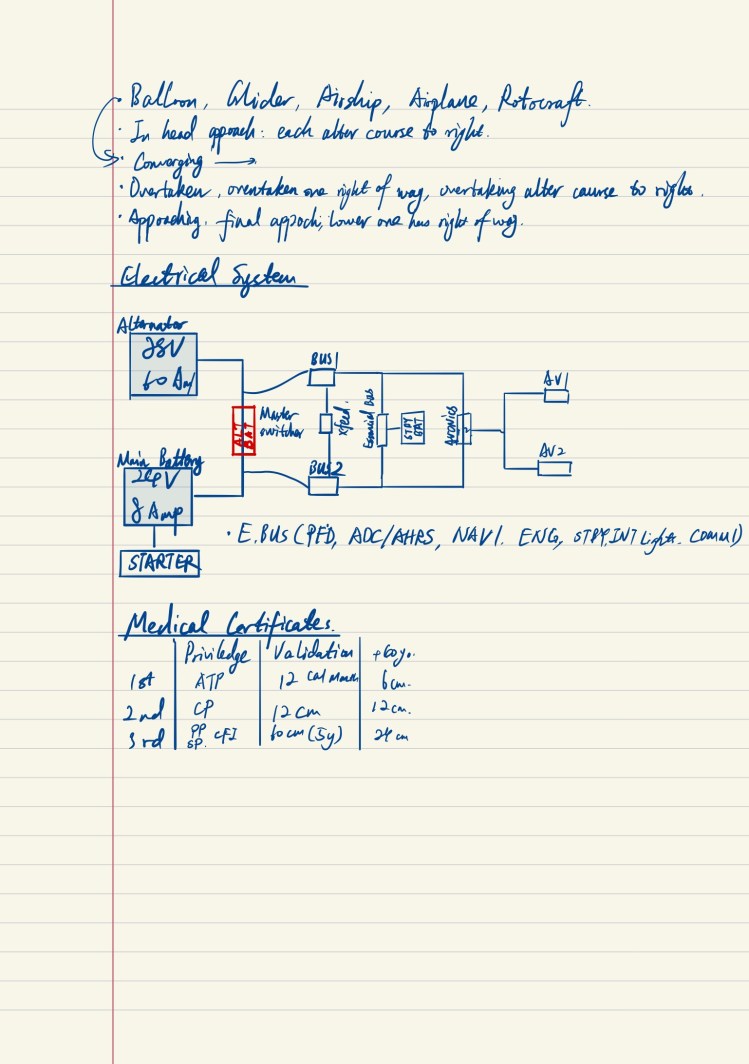 · Balloon, Glider, Airship, Airplane, Rotocraft.
· In head approach: each alter course to right.
· Converging →
· Overtaken, overtaken one right of way, overtaking alter course to right.
· Approaching. final approch, lower one has right of way.
Electrical System
Alternator
28V
60 Am
Main Battery
24V
8 Amp
STARTER
ALT
BAT
Master
switcher
BUS1
Xfeed.
BUS2
Essencial Bus
STBY
BAT
AVIONICS
AV1
AV2
· E.BUS (PFD, ADC/AHRS, NAV1. ENG, STBY, INT Light. COMM1)
Medical Certificates.
Priviledge Validation +60y.
1st ATP 12 Cal Month 6 cm.
2nd CP 12 cm 12 cm.
3rd PP SP. CFI 60 cm (5y) 24 cm